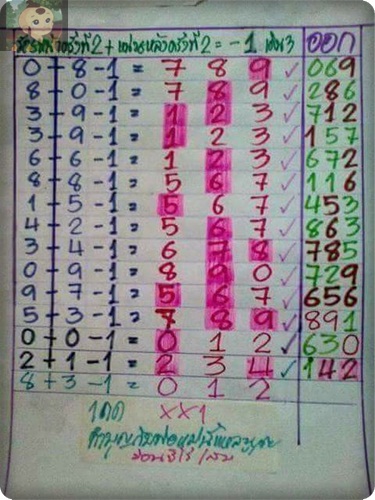 + = -1 ออก
0 + 8 - 1 = 7 8 9 ✓ 069
8 - 0 - 1 = 7 8 9 ✓ 286
3 + 9 - 1 = 1 2 3 ✓ 712
3 + 9 - 1 = 1 2 3 ✓ 157
6 + 6 - 1 = 1 2 3 ✓ 672
8 + 8 - 1 = 5 6 7 ✓ 116
1 + 5 - 1 = 5 6 7 ✓ 453
4 + 2 - 1 = 5 6 7 ✓ 863
3 + 4 - 1 = 6 7 8 ✓ 785
0 + 9 - 1 = 8 9 0 ✓ 729
9 + 7 - 1 = 5 6 7 ✓ 656
5 + 3 - 1 = 7 8 9 ✓ 891
0 + 0 - 1 = 0 1 2 ✓ 630
2 + 1 - 1 = 2 3 4 ✓ 142
8 + 3 - 1 = 0 1 2
XX1